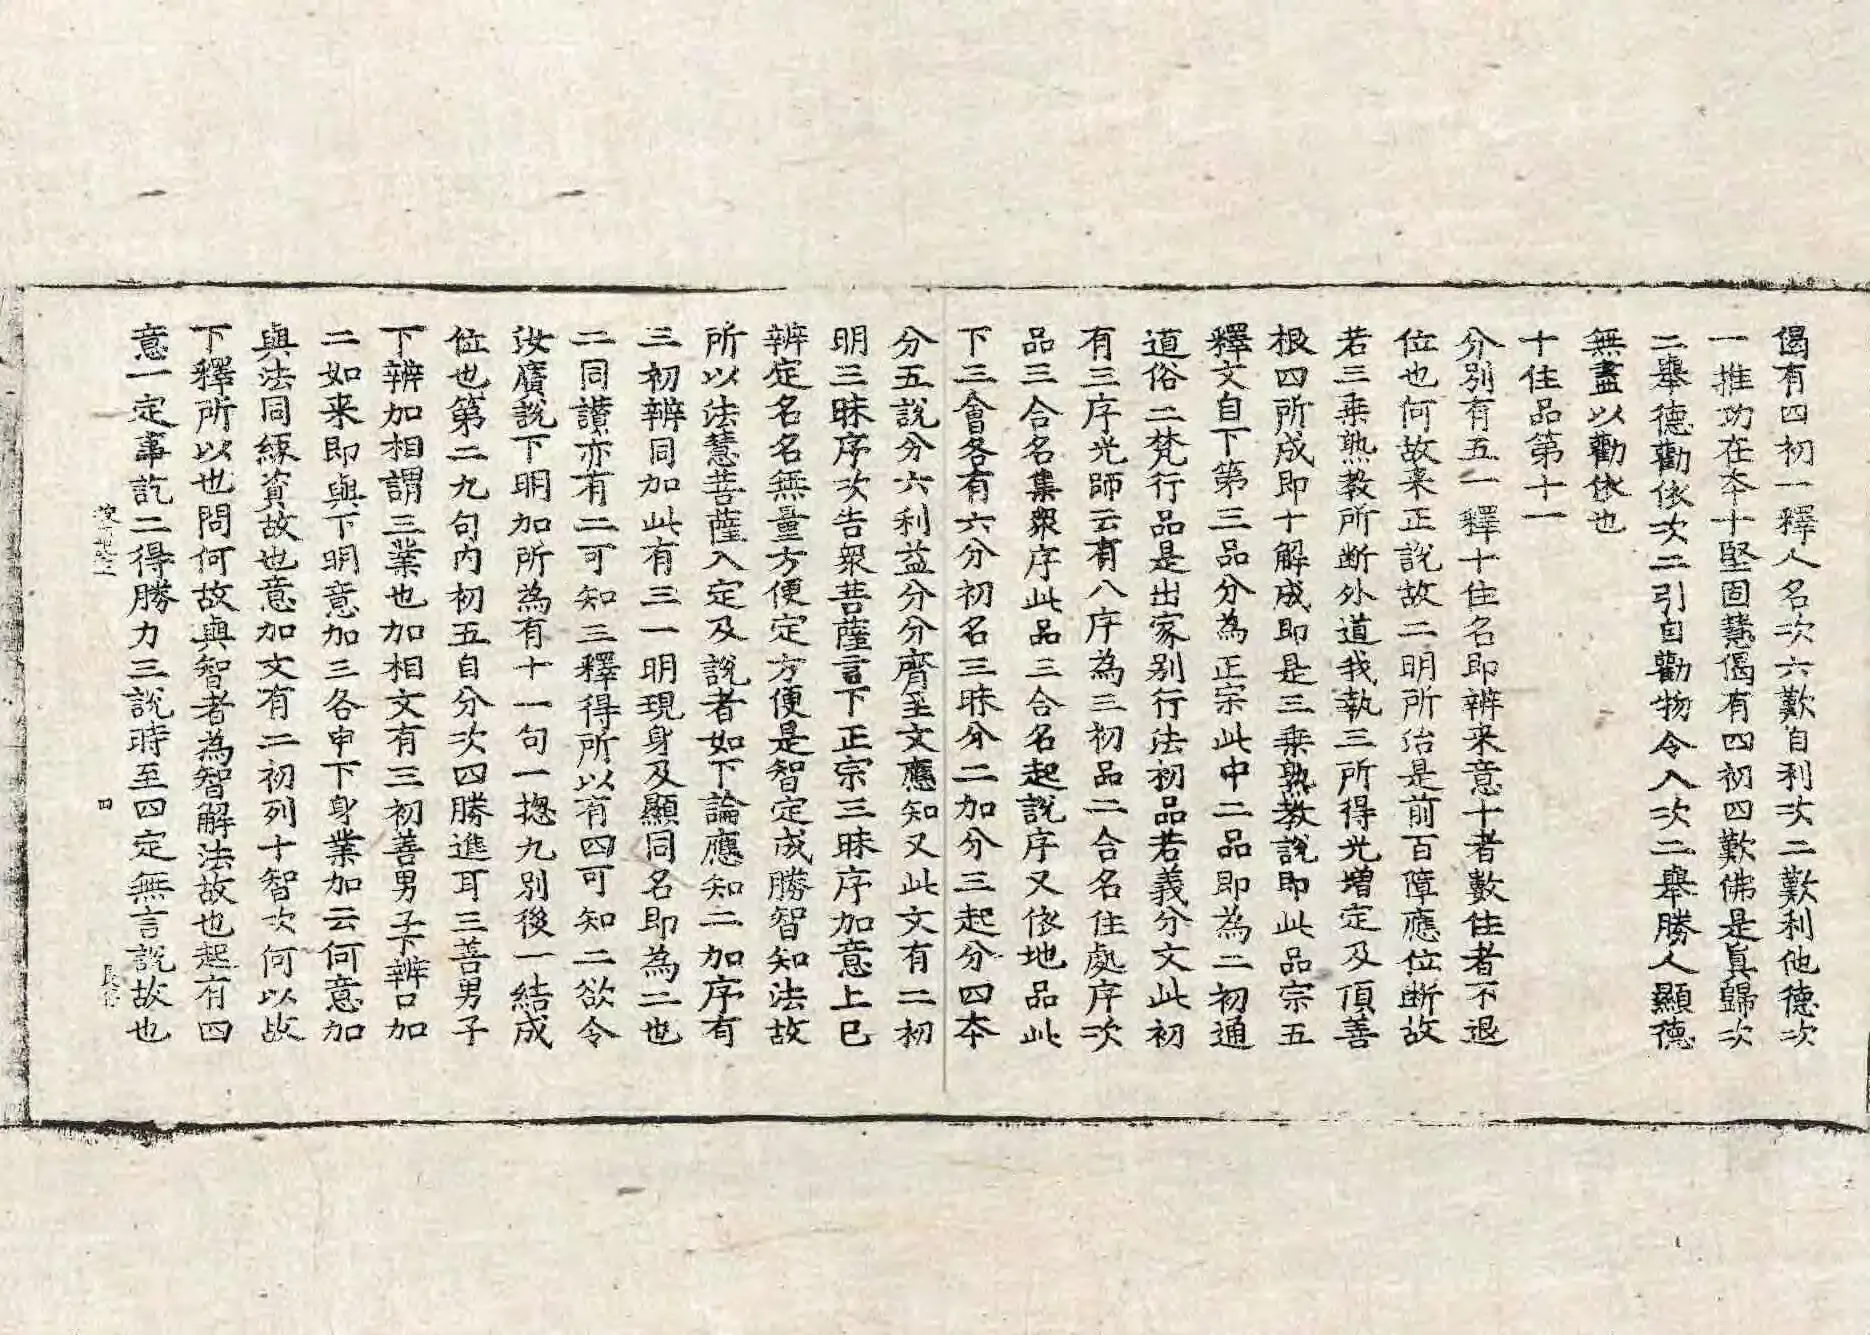 偈有四初一釋人名次六歎自利次二歎利他德次
一推功在夲十堅固慧偈有四初四歎佛是眞歸次
二舉德勸依次二引自勸物令入次二舉勝人顯德
無盡以勸依也
十住品第十一
分別有五一釋十住名即辨来意十者數住者不退
位也何故来正說故二明所治是前百障應位斷故
若三乗熟教所斷外道我執三所得光增定及頂善
根四所成即十解成即是三乗熟教說即此品宗五
釋文自下第三品分為正宗此中二品即為二初通
道俗二梵行品是出家别行法初品若義分文此初
有三序光師云有八序為三初品二合名住處序次
品三合名集衆序此品三合名起說序又依地品此
下三會各有六分初名三昧分二加分三起分四夲
分五說分六利益分分齊至文應知又此文有二初
明三昧序次告衆菩薩言下正宗三昧序加意上已
辨定名名無量方便定方便是智定成勝智知法故
所以法慧菩薩入定及說者如下論應知二加序有
三初辨同加此有三一明現身及顯同名即為二也
二同讃亦有二可知三釋得所以有四可知二欲令
汝廣說下明加所為有十一句一揔九別後一結成
位也第二九句内初五自分次四勝進耳三善男子
下辨加相謂三業也加相文有三初善男子下辨口加
二如来即與下明意加三各申下身業加云何意加
與法同縁資故也意加文有二初列十智次何以故
下釋所以也問何故與智者為智解法故也起有四
意一定事訖二得勝力三說時至四定無言說故也
四